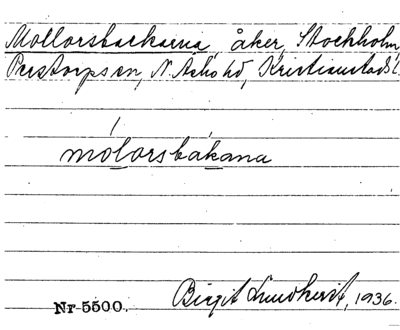 Mollorsbackarna, åker, Stockholm,
Perstorps sn, N. Åsbo hd, Kristianstads l.
mólorsbàkana
Nr 5500. Birgit Lundkvist, 1936.